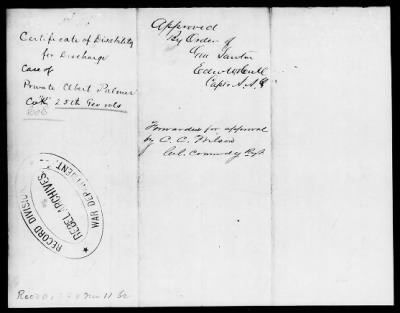 Certificate of Disability
for Discharge
Case of
Private Albert Palmer
Co K 25th Geo vols
Approved
By Order of
Capt & A. A. G
Forwarded for approval
by C. C. Wilson
Col. Commdg Regt
RECORD DIVISION
REBEL ARCHIVES
WAR DEPARTMENT
62